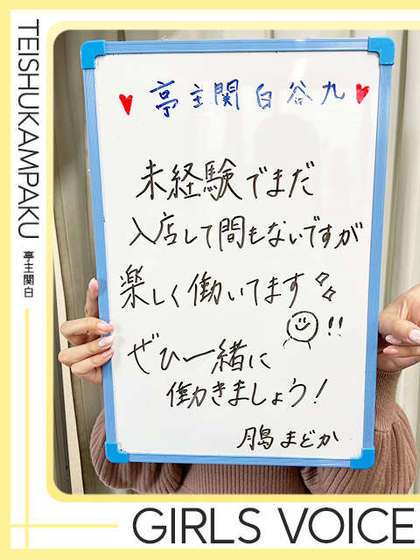 TEISHUKAMPAKU
亭主関白
♥亭主関白谷九♥
未経験でまだ
入店して間もないですが
楽しく働いてます
!!
ぜひ一緒に
働きましょう!
月島まどか
GIRLS VOICE